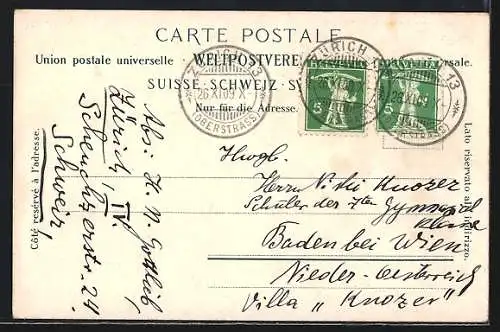 CARTE POSTALE
Union postale universelle - WELTPOSTVEREIN
SUISSE · SCHWEIZ ·
Nur für die Adresse.
Côté reservé à l'adresse.
Lato riservato all'indirizzo.
ZÜRICH 13
26.XI.09
(OBERSTRASS)
ZÜRICH 13
26.XI.09
(OBERSTRASS)
5
5
Abs: K. N. Gottlieb
Zürich IV.
Scheuchzerstr. 24
Schweiz,
Hwgb.
Herrn Niki Knozer
Schüler der 7ten Gymnasial
klasse
Baden bei Wien
Nieder-Oesterreich
Villa „Knozer"